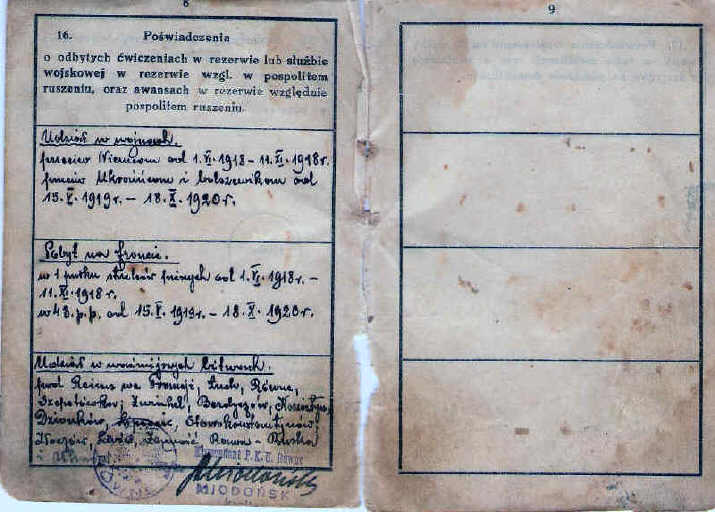 8
16. Poświadczenia
o odbytych ćwiczeniach w rezerwie lub służbie
wojskowej w rezerwie wzgl. w pospolitem
ruszeniu, oraz awansach w rezerwie względnie
pospolitem ruszeniu.
Udział w wojnach.
przeciw Niemcom od 1.VI.1918 – 11.XI.1918r.
przeciw Ukraińcom i bolszewikom od
15.V.1919r. – 18.X.1920r.
Pobyt na froncie.
w 1 pułku strzelców pieszych od 1.VI.1918r. –
11.XI.1918r.
w 43 p.p. od 15.V.1919r. – 18.X.1920r.
Udział w ważniejszych bitwach.
pod Reims we Francji, Łuck, Równe,
Szepetówka, Berdyczów,
Dziunków, Starokonstantynów,
Zamość Rawa-Ruska
i
Komendant P.K.U.
MIODOŃSKI
9